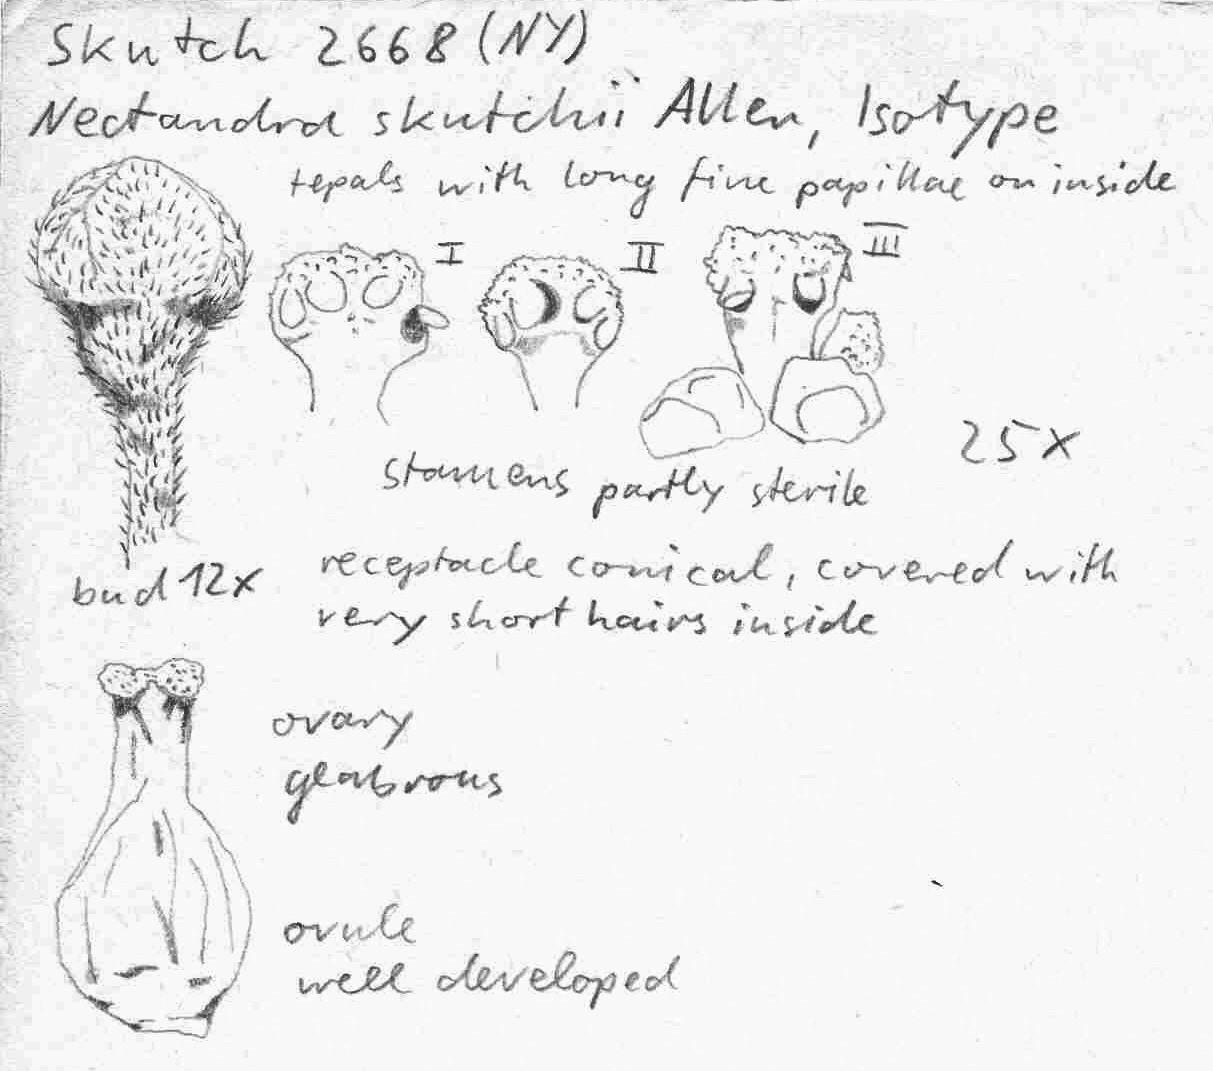 Skutch 2668 (NY)
Nectandra skutchii Allen, Isotype
tepals with long fine papillae on inside
I
II
III
25x
stamens partly sterile
bud 12x
receptacle conical, covered with
very short hairs inside
ovary
glabrous
ovule
well developed